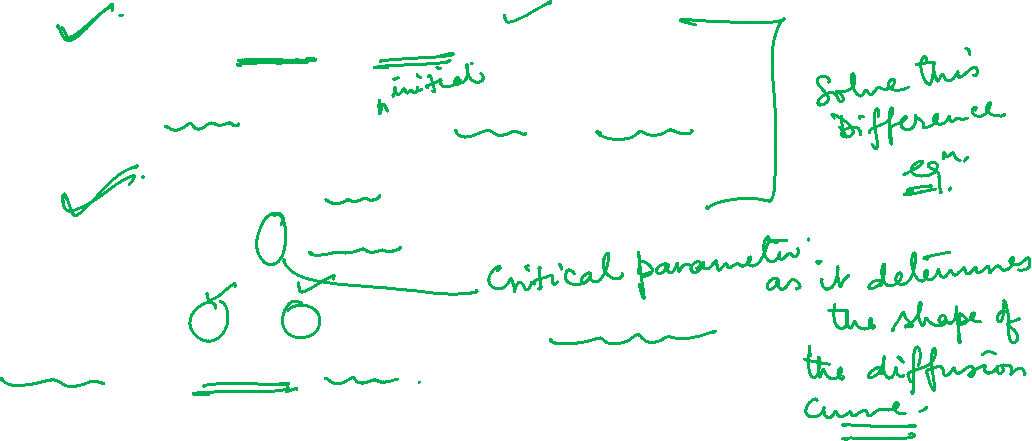 initial
Solve this
Difference
eqn.
Critical parameter
as it determines
the shape of
the diffusion
curve.